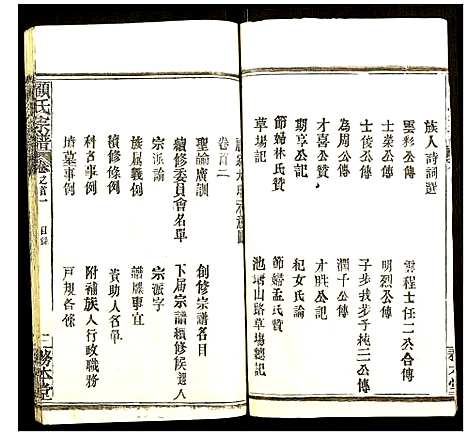 族人詩詞選
雲彩公傳
雲程士任二公合傳
士棠公傳
明烈公傳
士俊公傳
子步我芽子純二公傳
為周公傳
潤千公傳
才喜公贊
才胜公記
期亨公記
杞女氏論
節婦林氏贊
節婦孟氏贊
草場記
池塘山路草場總記
卷首二
聖諭廣訓
創修宗譜名目
續修委員會名單
下届宗譜續修候選人
宗派論
宗派字
族居義例
譜牒事宜
續修條例
資助人名單
科名事例
附補族人行政職務
墳墓事例
戸規各條
顧氏宗譜
卷之首一
目錄
務本堂